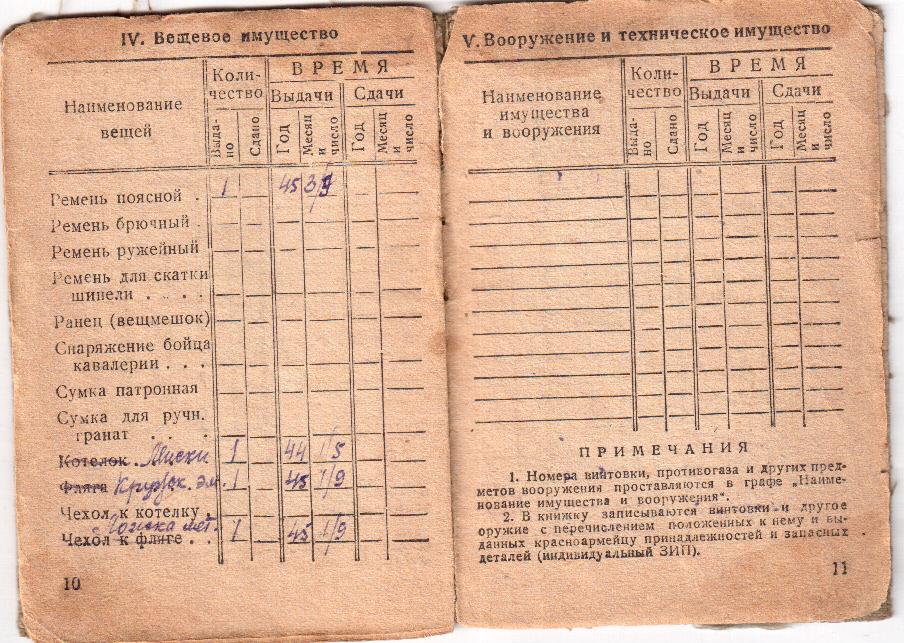 IV. Вещевое имущество
Наименование
вещей
Коли-
чество
ВРЕМЯ
Выдачи
Сдачи
Выда-
но
Сдано
Год
Месяц
и
число
Год
Месяц
и
число
Ремень поясной . 1 45 3/9
Ремень брючный .
Ремень ружейный
Ремень для скатки
шинели . . . .
Ранец (вещмешок)
Снаряжение бойца
кавалерии . . .
Сумка патронная
Сумка для ручн.
гранат . . .
Котелок 1 44 1/5
Фляга Кружк. эм. 1 45 1/9
Чехол к котелку
мет.
Чехол к фляге . . 1 45 1/9
10
V. Вооружение и техническое имущество
Наименование
имущества
и вооружения
Коли-
чество
ВРЕМЯ
Выдачи
Сдачи
Выда-
но
Сдано
Год
Месяц
и
число
Год
Месяц
и
число
ПРИМЕЧАНИЯ
1. Номера винтовки, противогаза и других пред-
метов вооружения проставляются в графе „Наиме-
нование имущества и вооружения“.
2. В книжку записываются винтовки и другое
оружие с перечислением положенных к нему и вы-
данных красноармейцу принадлежностей и запасных
деталей (индивидуальный ЗИП).
11